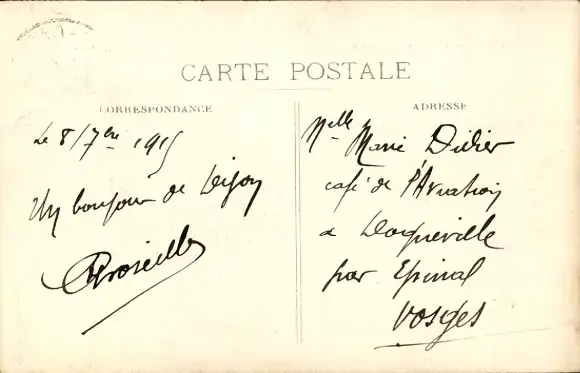 CARTE POSTALE
CORRESPONDANCE
Le 8/7bre 1915
Un bonjour de Dijon
ADRESSE
Melle Marie Didier
café de l'Aviation
à Dogneville
par Epinal
Vosges